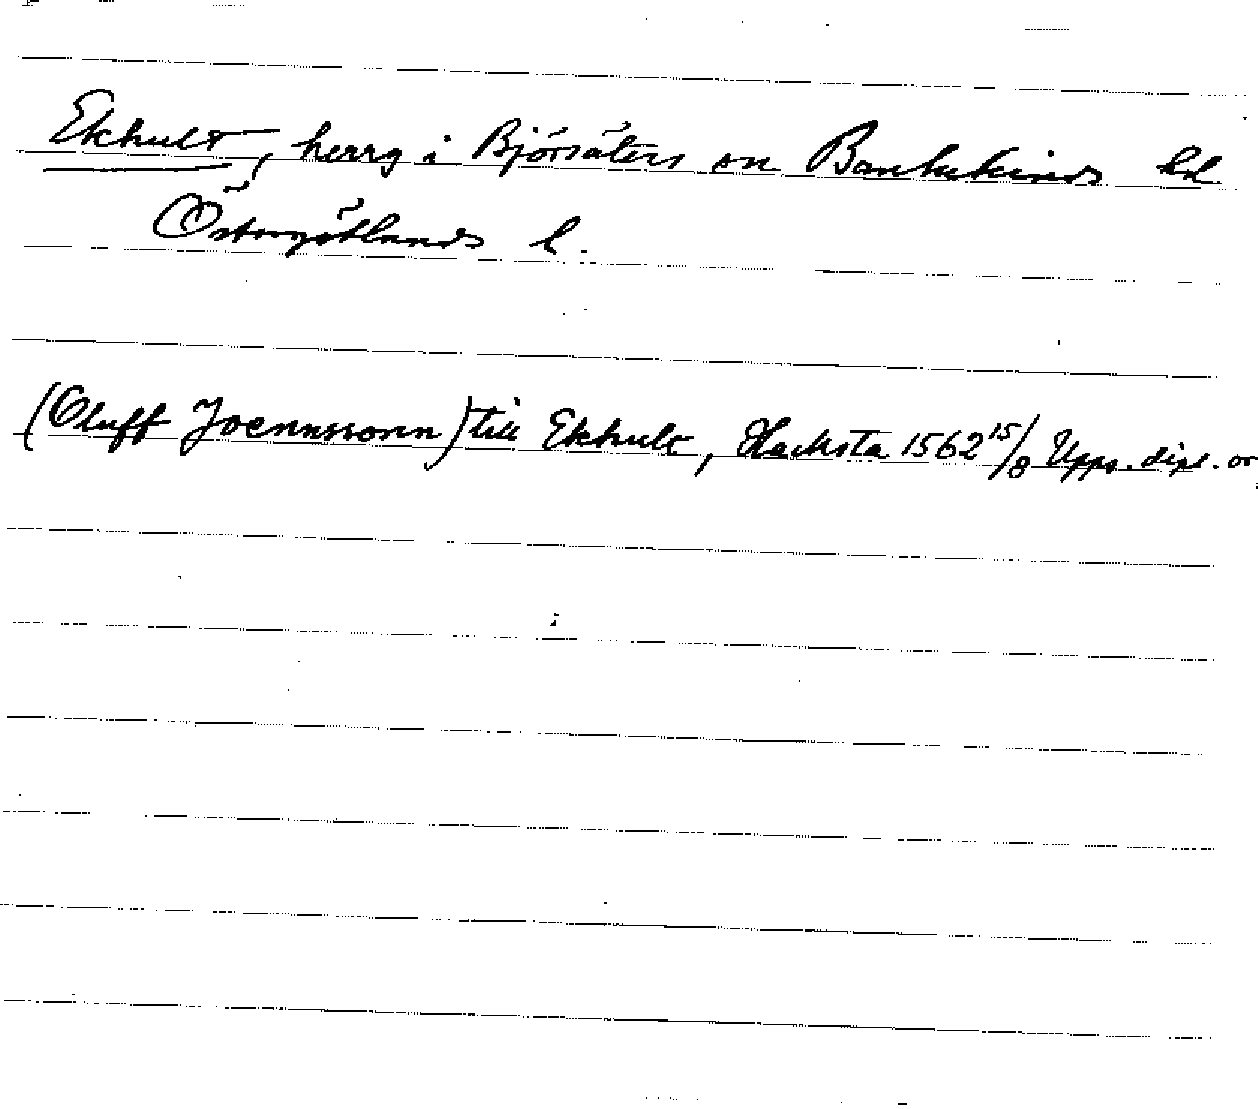 Ekhult, herrg i Björsäters sn Bankekinds hd
Östergötlands l.
(Oluff Joennssonn) till Ekhult, Hacksta 1562 15/8 Upps. dipl. or